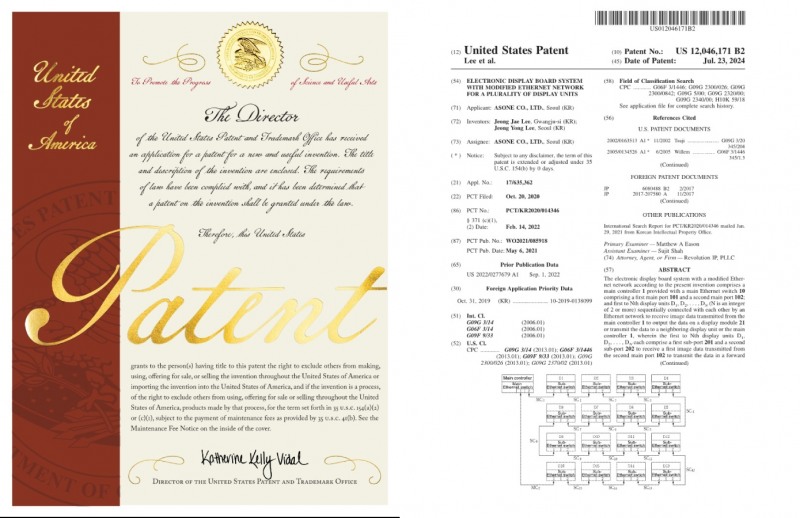 United
States
of
America
To Promote the Progress
of Science and Useful Arts
The Director
of the United States Patent and Trademark Office has received
an application for a patent for a new and useful invention. The title
and description of the invention are enclosed. The requirements
of law have been complied with, and it has been determined that
a patent on the invention shall be granted under the law.
Therefore, this United States
Patent
grants to the person(s) having title to this patent the right to exclude others from making,
using, offering for sale, or selling the invention throughout the United States of America or
importing the invention into the United States of America, and if the invention is a process,
of the right to exclude others from using, offering for sale or selling throughout the United
States of America, products made by that process, for the term set forth in 35 U.S.C. 154(a)(2)
or (c)(1), subject to the payment of maintenance fees as provided by 35 U.S.C. 41(b). See the
Maintenance Fee Notice on the inside of the cover.
Katherine Kelly Vidal
Director of the United States Patent and Trademark Office
US012046171B2
(12) United States Patent
Lee et al.
(10) Patent No.: US 12,046,171 B2
(45) Date of Patent: Jul. 23, 2024
(54) ELECTRONIC DISPLAY BOARD SYSTEM
WITH MODIFIED ETHERNET NETWORK
FOR A PLURALITY OF DISPLAY UNITS
(71) Applicant: ASONE CO., LTD., Seoul (KR)
(72) Inventors: Jeong Jae Lee, Gwangju-si (KR);
Jeong Yong Lee, Seoul (KR)
(73) Assignee: ASONE CO., LTD., Seoul (KR)
(*) Notice: Subject to any disclaimer, the term of this
patent is extended or adjusted under 35
U.S.C. 154(b) by 0 days.
(21) Appl. No.: 17/635,362
(22) PCT Filed: Oct. 20, 2020
(86) PCT No.: PCT/KR2020/014346
§ 371 (c)(1),
(2) Date: Feb. 14, 2022
(87) PCT Pub. No.: WO2021/085918
PCT Pub. Date: May 6, 2021
(65) Prior Publication Data
US 2022/0277679 A1 Sep. 1, 2022
(30) Foreign Application Priority Data
Oct. 31, 2019 (KR) 10-2019-0138099
(51) Int. Cl.
G09G 3/14 (2006.01)
G06F 3/14 (2006.01)
G09F 9/33 (2006.01)
(52) U.S. Cl.
CPC G09G 3/14 (2013.01); G06F 3/1446
(2013.01); G09F 9/33 (2013.01); G09G
2300/026 (2013.01); G09G 2370/02 (2013.01)
(58) Field of Classification Search
CPC G06F 3/1446; G09G 2300/026; G09G
2300/0842; G09G 5/00; G09G 2320/00;
G09G 2340/00; H10K 59/18
See application file for complete search history.
(56) References Cited
U.S. PATENT DOCUMENTS
2002/0163513 A1* 11/2002 Tsuji G09G 3/20
345/208
2005/0134525 A1* 6/2005 Willem G06F 3/1446
345/1.3
(Continued)
FOREIGN PATENT DOCUMENTS
JP 6080408 B2 2/2017
JP 2017-207580 A 11/2017
(Continued)
OTHER PUBLICATIONS
International Search Report for PCT/KR2020/014346 mailed Jan.
29, 2021 from Korean Intellectual Property Office.
Primary Examiner — Matthew A Eason
Assistant Examiner — Sujit Shah
(74) Attorney, Agent, or Firm — Revolution IP, PLLC
(57) ABSTRACT
The electronic display board system with a modified Ether-
net network according to the present invention comprises a
main controller 1 provided with a main Ethernet switch 10
comprising a first main port 101 and a second main port 102;
and first to Nth display units D1, D2, ... DN (N is an integer
of 2 or more) sequentially connected with each other by an
Ethernet network to receive image data transmitted from the
main controller 1 to output the data on a display module 21
or transmit the data to a neighboring display unit or the main
controller 1, wherein the first to Nth display units D1,
D2, ... DN each comprise a first sub-port 201 and a second
sub-port 202 to receive a first image data transmitted from
the second main port 102 to transmit the data in a forward
(Continued)
Main controller
Main
Ethernet switch